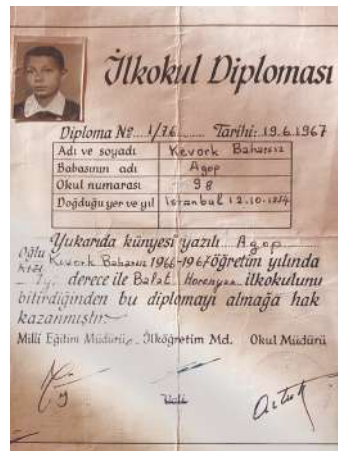 İlkokul Diploması
Diploma № 1/76 Tarihi: 19.6.1967
Adı ve soyadı Kevork
Babasının adı Agop
Okul numarası 98
Doğduğu yer ve yıl İstanbul 12.10.1954
Yukarıda künyesi yazılı Agop
oğlu Kevork 1966-1967 öğretim yılında
derece ile Balat Horenyan ilkokulunu
bitirdiğinden bu diplomayı almağa hak
kazanmıştır.
Milli Eğitim Müdürü İlköğretim Md. Okul Müdürü
Vali